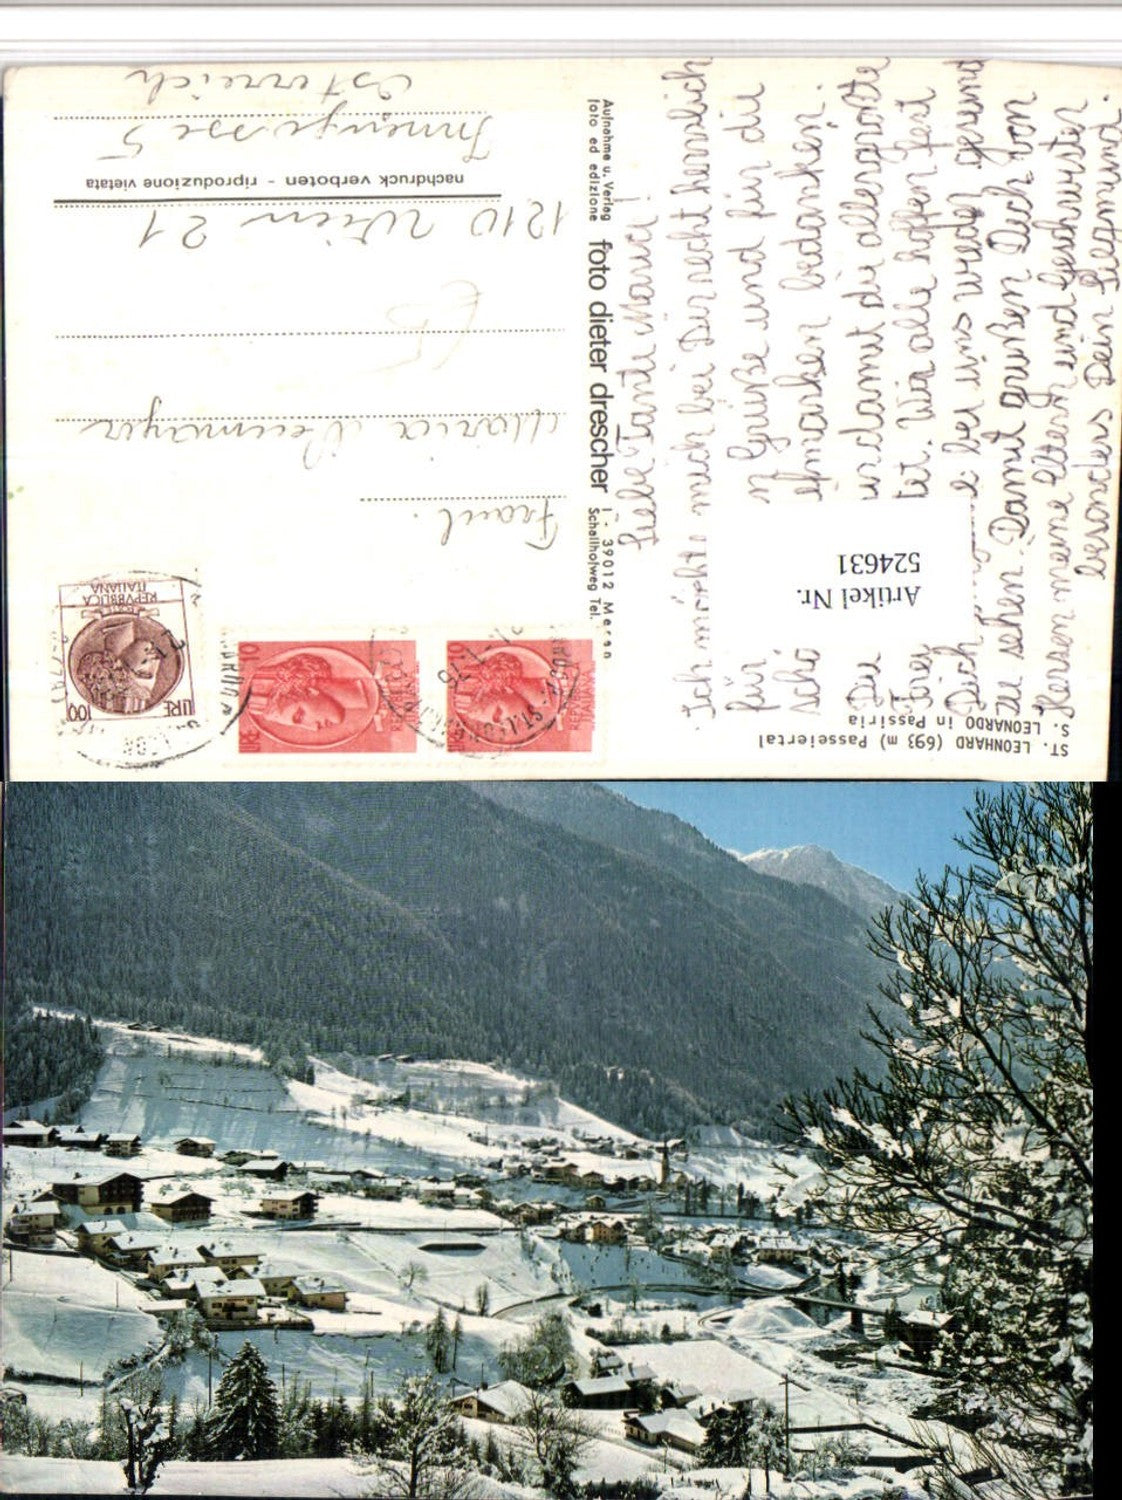 ST. LEONHARD (693 m) Passeiertal
S. LEONARDO in Passiria
Liebe Tante
Ich möchte mich bei Dir recht herzlich
für Grüße und für die
schö bedanken.
Du und damit die allergrößte
tet. Wir alle hoffen fest
Dich bei uns wieder gesund
zu sehen. Damit grüßen Dich von
Herzen meine Eltern und Geschwister
besonders Dein Siegmund.
Artikel Nr.
524631
Aufnahme u. Verlag
foto ed edizione
foto dieter drescher
I - 39012 Meran
Schallhofweg Tel.
LIRE 100
REPVBBLICA
ITALIANA
LIRE 10
REPVBBLICA
ITALIANA
10
REPVBBLICA
ITALIANA
Fraul.
Maria
1210 Wien 21
nachdruck verboten - riproduzione vietata
5
Österreich